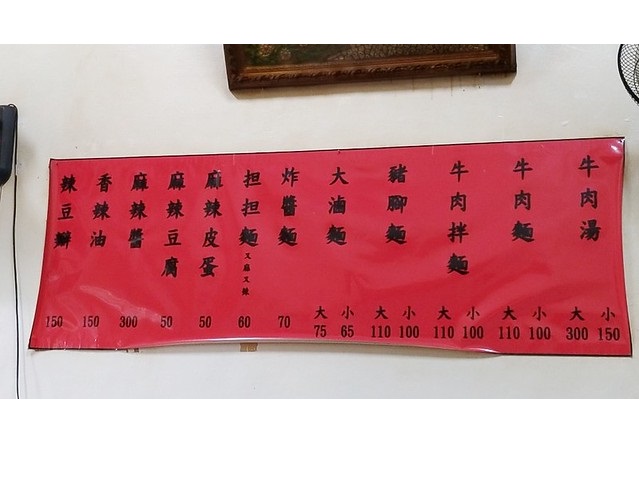 牛肉湯 大300 小150
牛肉麵 大110 小100
牛肉拌麵 大110 小100
豬腳麵 大110 小100
大滷麵 大75 小65
炸醬麵 70
担担麵 又麻又辣 60
麻辣皮蛋 50
麻辣豆腐 50
麻辣醬 300
香辣油 150
辣豆瓣 150